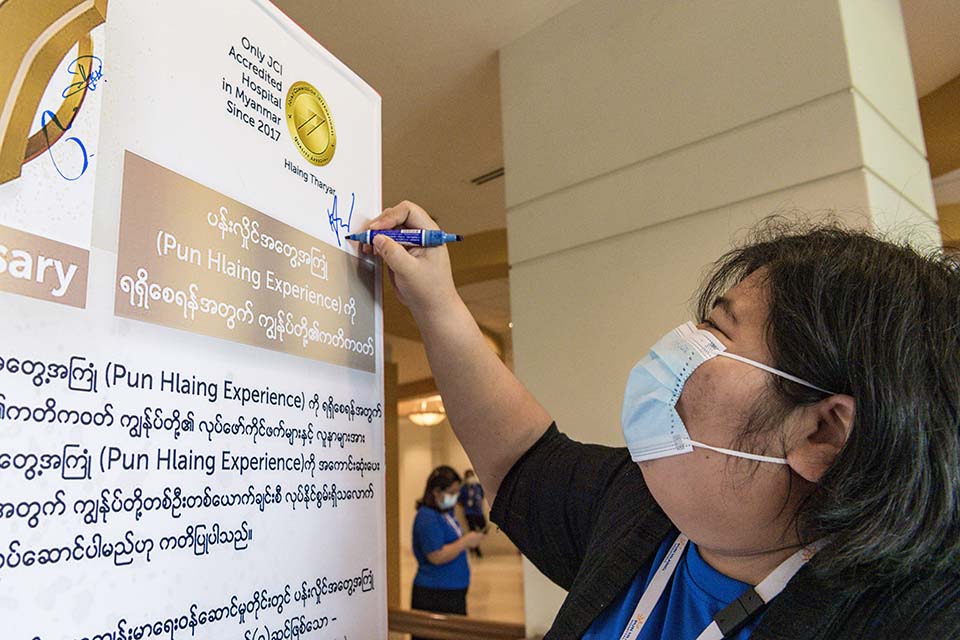 Only JCI
Accredited
Hospital
in Myanmar
Since 2017
Hlaing Tharyar
sary
ပန်းလှိုင်အတွေ့အကြုံ
(Pun Hlaing Experience) ကို
ရရှိစေရန်အတွက် ကျွန်ုပ်တို့၏ကတိကဝတ်
အတွေ့အကြုံ (Pun Hlaing Experience) ကို ရရှိစေရန်အတွက်
ကတိကဝတ် ကျွန်ုပ်တို့၏ လုပ်ဖော်ကိုင်ဖက်များနှင့် လူနာများအား
တွေ့အကြုံ (Pun Hlaing Experience)ကို အကောင်းဆုံးပေး
အတွက် ကျွန်ုပ်တို့တစ်ဦးတစ်ယောက်ချင်းစီ လုပ်နိုင်စွမ်းရှိသလောက်
ဆောင်ပါမည်ဟု ကတိပြုပါသည်။
ကျန်းမာရေးဝန်ဆောင်မှုတိုင်းတွင် ပန်းလှိုင်အတွေ့အကြုံ